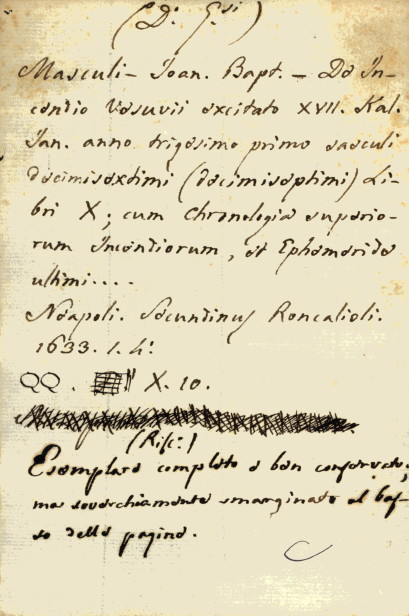 (D. G.si)
Masculi - Ioan. Bapt. - De In-
cendio Vesuvii excitato XVII. Kal.
Ian. anno trigesimo primo saeculi
decimisextimi (decimiseptimi) Li-
bri X; cum Chronologia superio-
rum Incendiorum, et Ephemeride
ultimi....
Neapoli. Secundinus Roncalioli.
1633. 1. 4.°
QQ. X. 10.
(Risc.°)
Esemplare completo e ben conservato,
ma soverchiamente smarginato al bas-
so delle pagine.